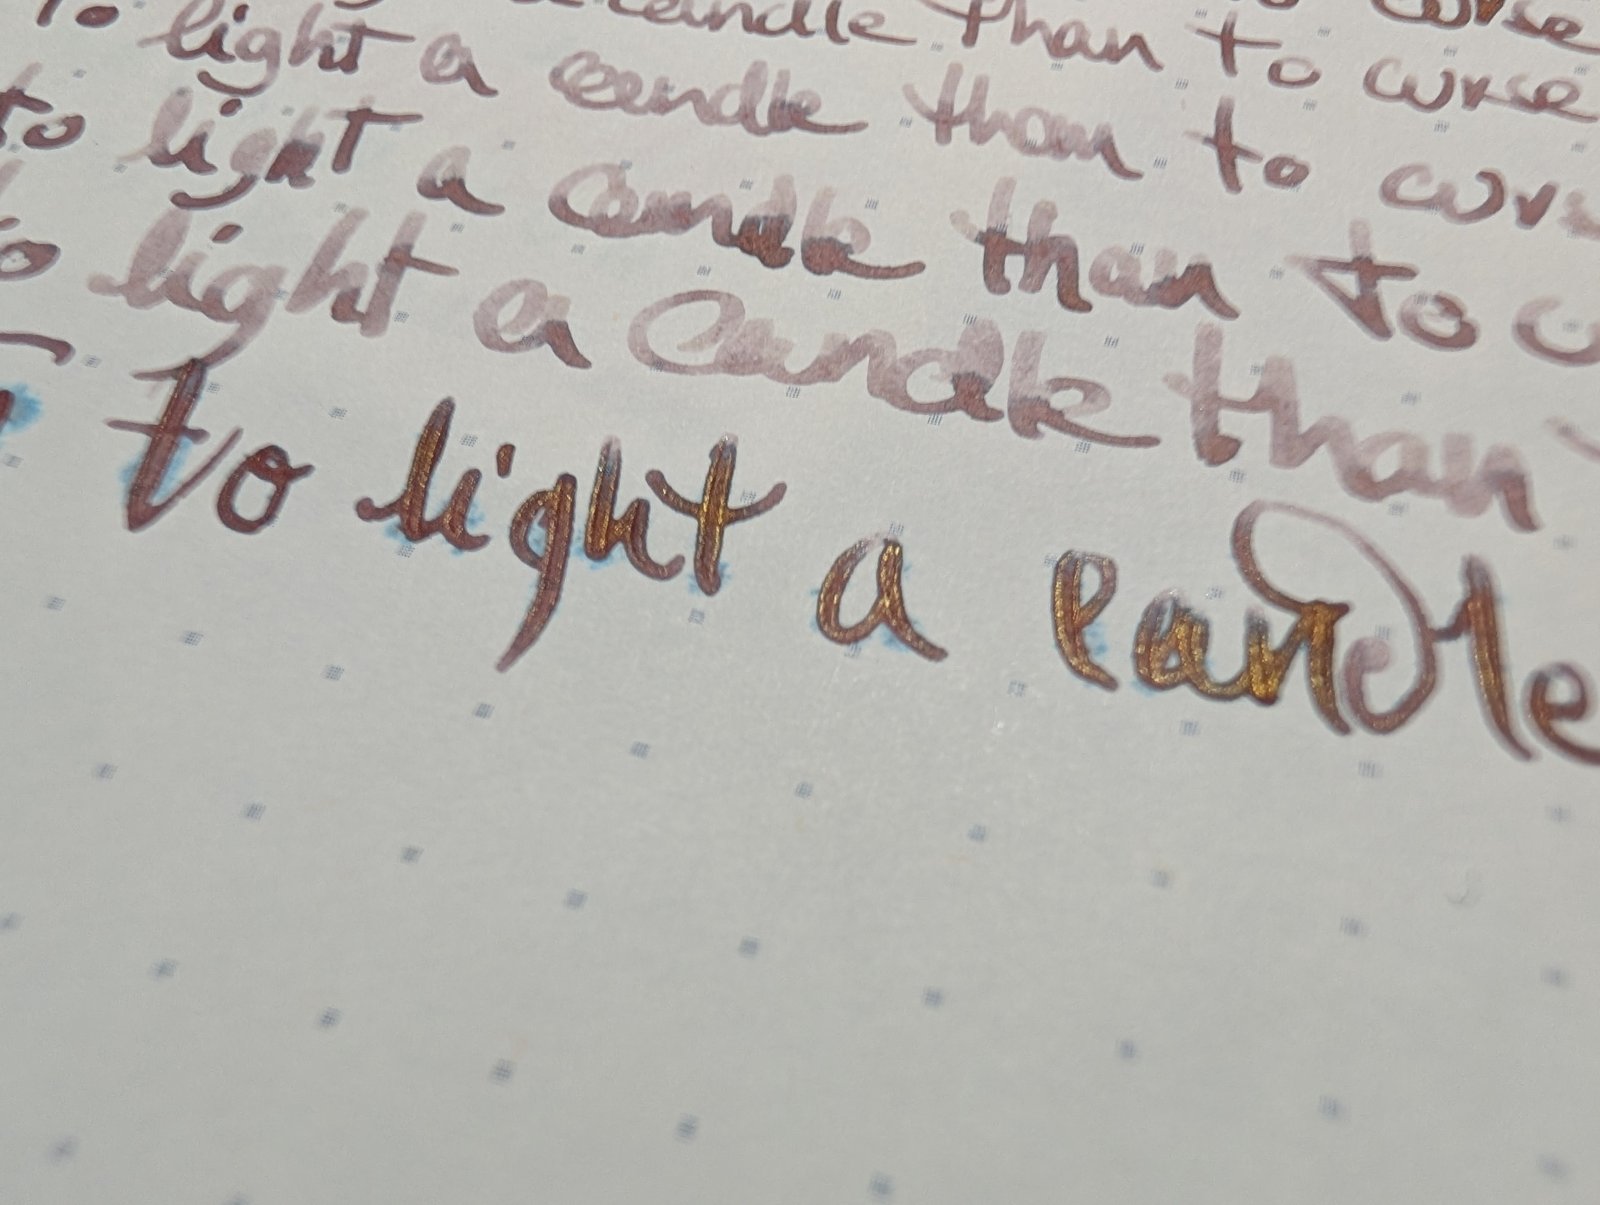 to light a candle than to curse
to light a candle than to curse
to light a candle than to
to light a candle than
to light a candle